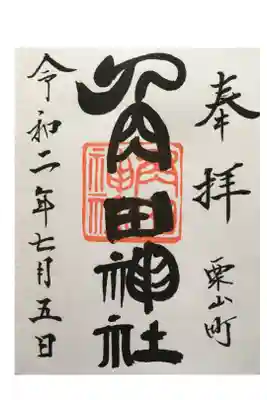 奉拝
栗山町
角田神社
角田
神社
令和二年七月五日